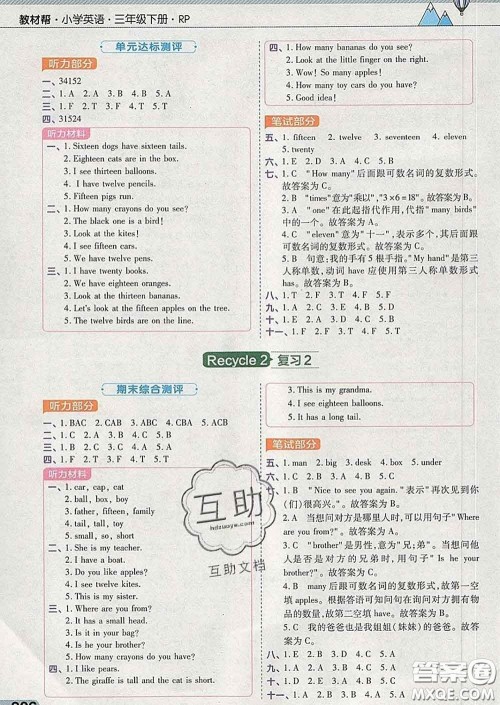 教材帮·小学英语·三年级下册·RP
单元达标测评
听力部分
一、34152
二、1. A 2. A 3. A 4. B 5. A
三、1. F 2. T 3. F 4. T 5. T
四、31524
听力材料
一、1. Sixteen dogs have sixteen tails.
2. Eighteen cats are in the box.
3. I see thirteen balloons.
4. I have twelve pencils.
5. Fifteen pigs run.
二、1. How many crayons do you see?
2. The black one is a bird!
3. Look at the kites!
4. I see fifteen cars.
5. We have twelve pens.
三、1. I have twenty books.
2. We have eighteen oranges.
3. Look at the thirteen bananas.
4. Let's look at the fifteen apples on the tree.
5. The twelve birds are on the line.
四、1. How many bananas do you see?
2. Look at the little finger on the right.
3. Wow! So many apples!
4. How many toy cars do you have?
5. Good idea!
笔试部分
五、1. fifteen 2. twelve 3. seventeen 4. eleven
5. twenty
六、1. E 2. D 3. A 4. C 5. B
七、1. C "How many"后面跟可数名词的复数形式。
故答案为 C。
2. B "times"意为"乘以","3×6=18"。故答案为 B。
3. A "one"在此起指代作用,代指"many birds"
中的一个。故答案为 A。
4. C "eleven"意为"十一",表示多个,后面跟可
数名词的复数形式。故答案为 C。
5. B 句意:我的手有5根手指。"My hand"是第三
人称单数,动词 have 应使用第三人称单数形式
has。故答案为 B。
八、1. T 2. F 3. F 4. T 5. T
九、1. B 2. C 3. A 4. E 5. D
十、1. D 2. A 3. B 4. C
十一、1. F 2. T 3. F 4. T 5. F
Recycle 2 复习2
期末综合测评
听力部分
一、1. BAC 2. CAB 3. ABC 4. CBA 5. BAC
二、1. C 2. A 3. B 4. A 5. C
三、1. B 2. A 3. A 4. B 5. B
四、1. F 2. T 3. T 4. F 5. T
听力材料
一、1. car, cap, cat
2. ball, box, boy
3. father, fifteen, family
4. tail, tall, toy
5. small, so, short
二、1. She is my teacher.
2. I have a bird.
3. Do you like apples?
4. I see twelve kites.
5. This is my sister.
三、1. Where are you from?
2. It has a small head.
3. Is it in your bag?
4. Is he your brother?
5. How many crayons do you have?
四、1. I like pears.
2. The giraffe is tall and the cat is short.
3. This is my grandma.
4. I see eighteen balloons.
5. It has a long tail.
笔试部分
五、1. man 2. big 3. desk 4. box 5. under
六、1. C 2. A 3. B 4. A 5. B
七、1. B "Nice to see you again."表示"再次见到你
(们)很高兴"。故答案为 B。
2. A 当想问对方是哪里人时,可以用句子"Where
are you from?"故答案为 A。
3. C "brother"是男性,意为"兄;弟"。因此当想
问对方的兄弟时,应该用句子"Is he your
brother?"故答案为 C。
4. B many后面跟可数名词的复数形式,故第一空
填 kites。根据答语可知问句询问对方拥有的事
物的数量,故第二空填 have。故答案为 B。
5. C 我的爸爸也是我姐姐(妹妹)的爸爸。故答
案为 C。
八、1. B 2. A 3. D 4. C 5. E
九、1. D 2. E 3. A 4. C 5. B
十、1. C 2. A 3. D 4. B
十一、1. A 2. B 3. B 4. B 5. A
互助
互助文档
答案圈